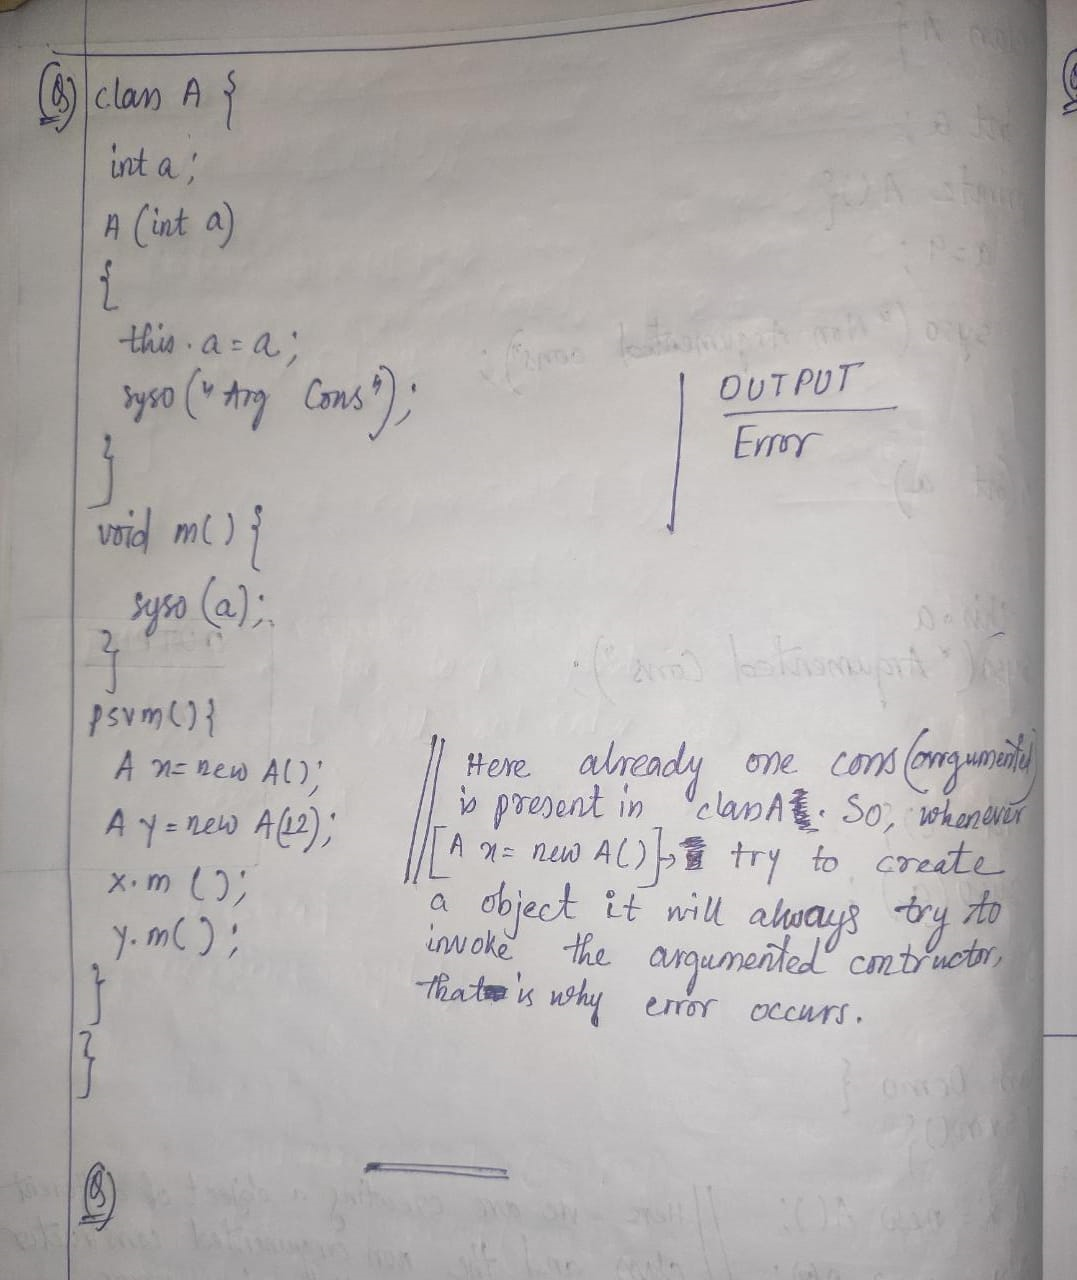 (Q) class A {
int a;
A (int a)
{
this.a = a;
syso ("Arg Cons");
}
void m() {
syso (a);
}
psvm() {
A x = new A();
A y = new A(12);
x.m ();
y.m();
}
}
OUTPUT
Error
// Here already one cons (argumented)
is present in class A. So, whenever
// [A x = new A()] → try to create
a object it will always try to
invoke the argumented contructor,
that is why error occurs.
(Q)